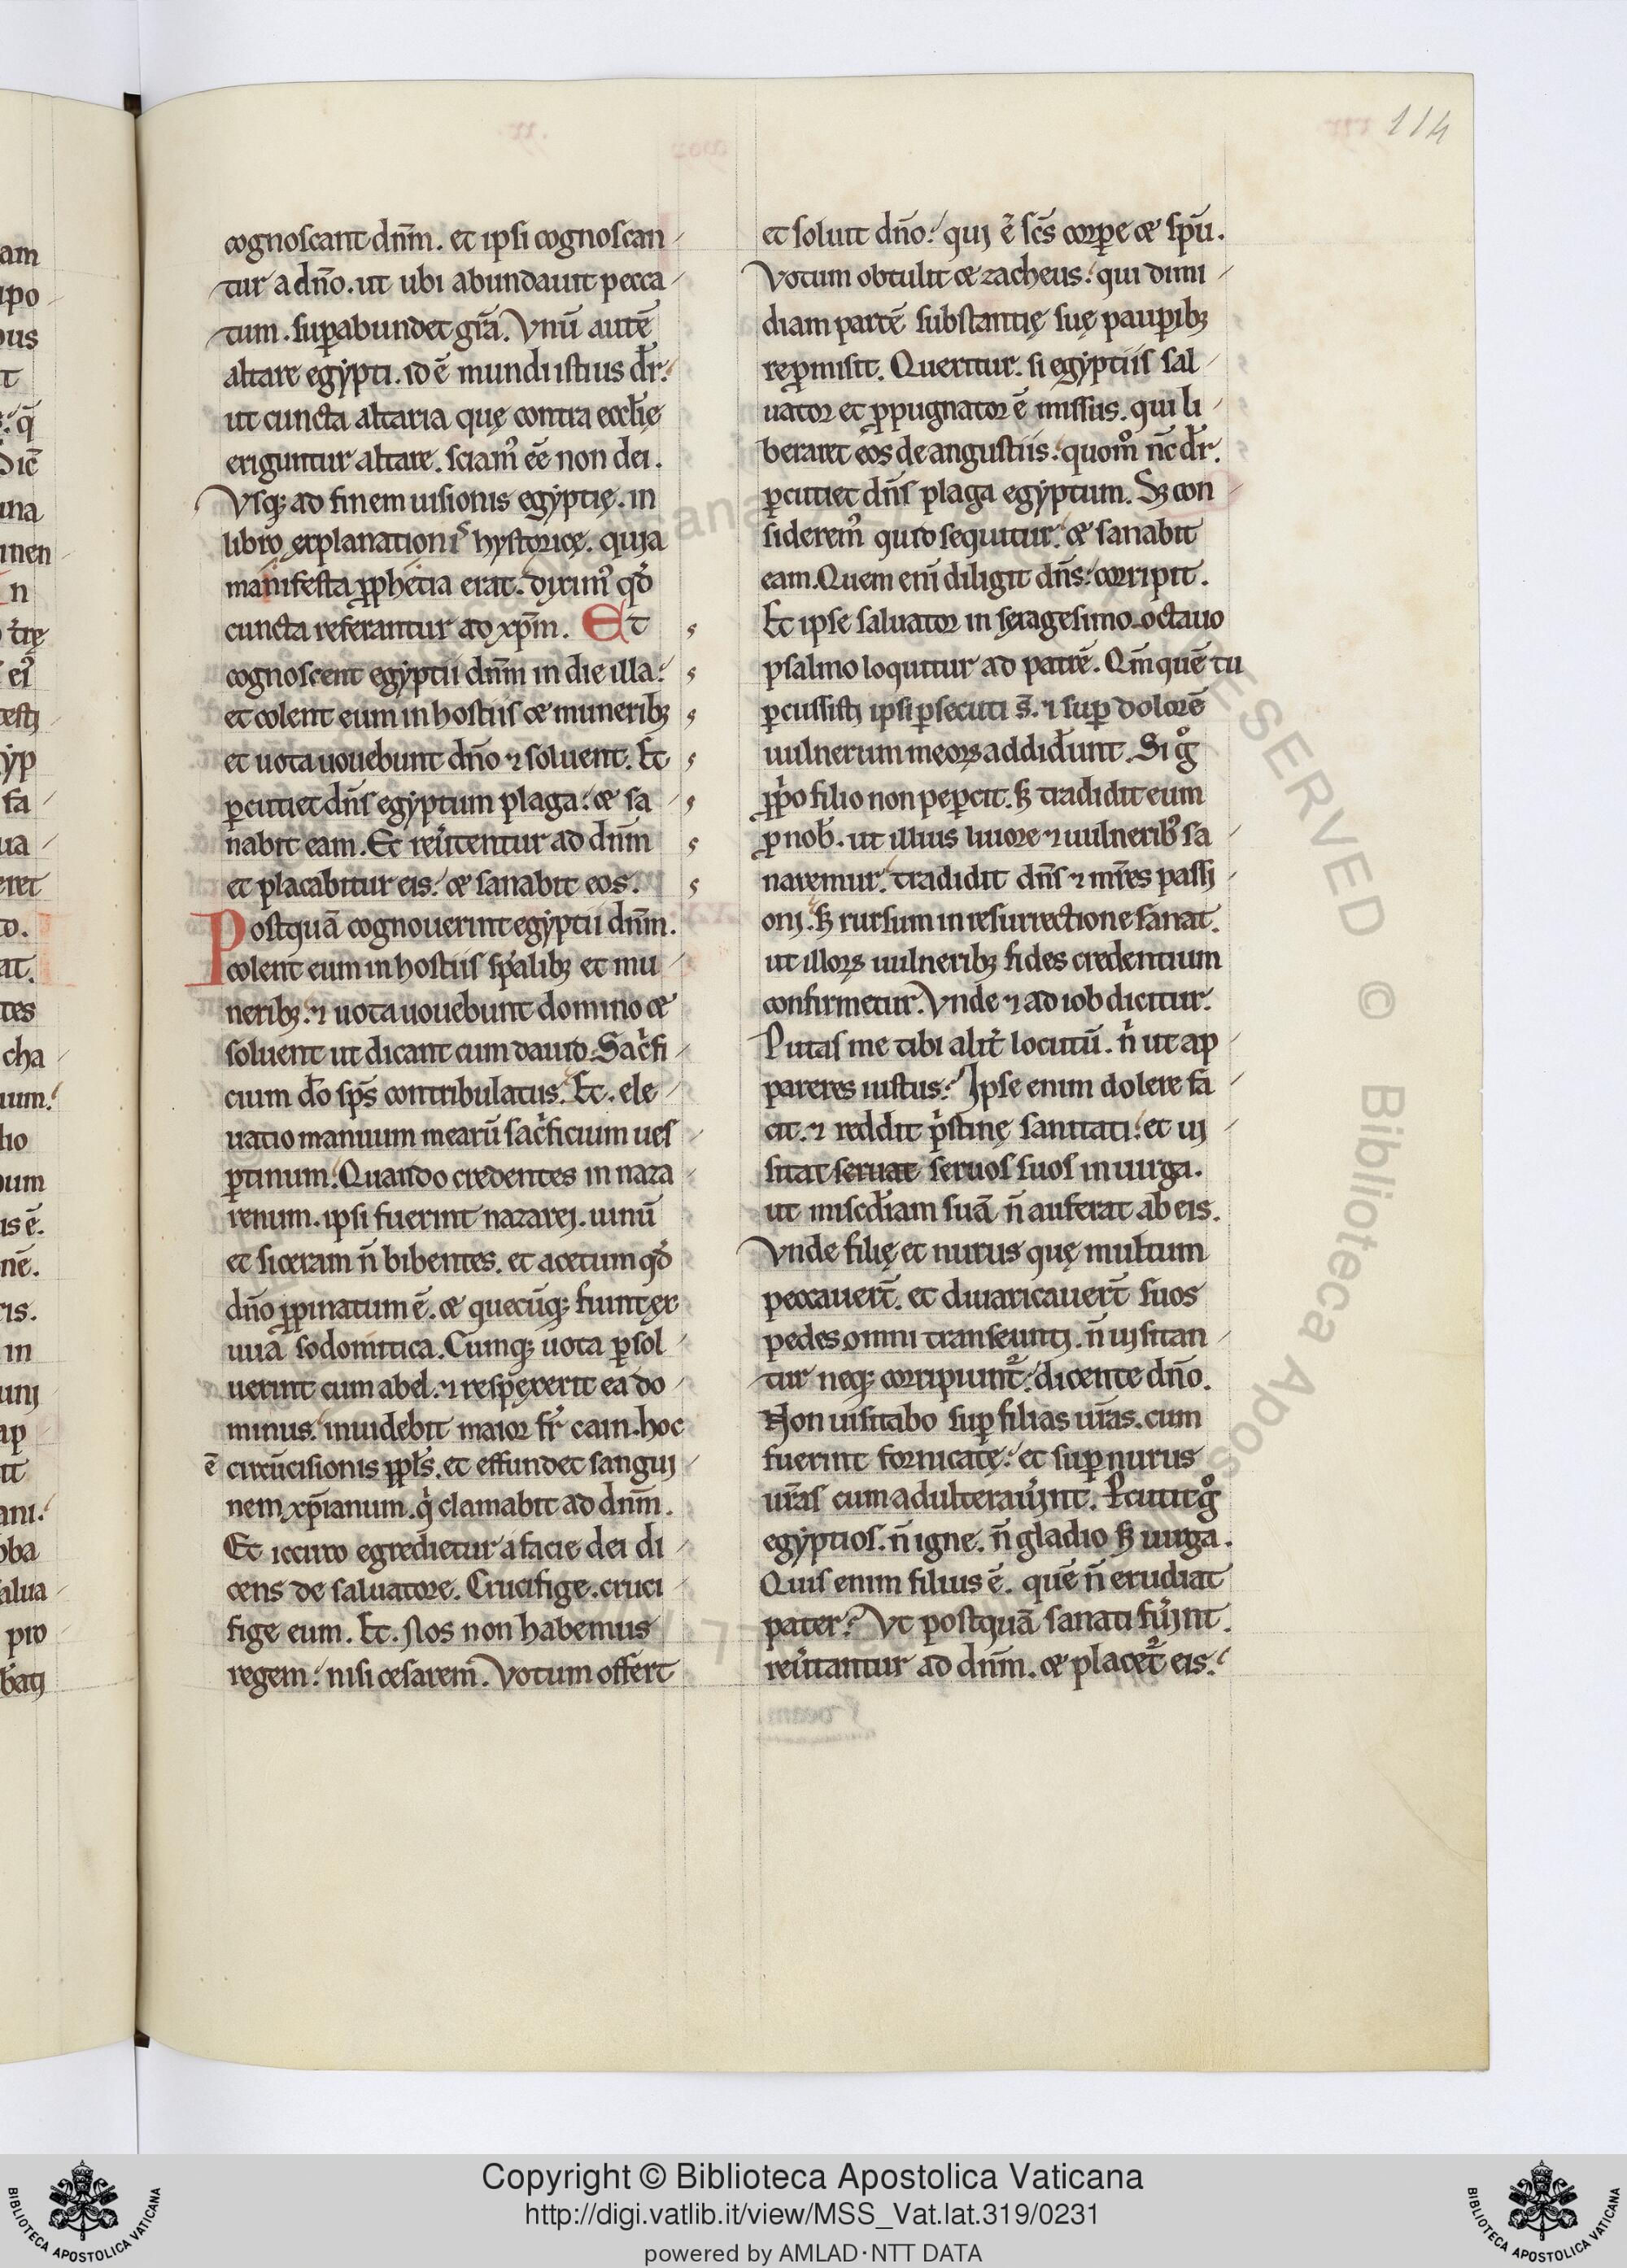 114
cognoscant dn̄m. et ipsi cognoscan
tur a dn̄o. ut ubi abundauit pecca
tum. suꝑabundet gr̄a. Vnū autē
altare egypti. id ē mundi istius dr̄.
ut cuncta altaria quę contra ecclīę
eriguntur altare. sciamꝰ eē non dei.
Vsqꝫ ad finem uisionis egyptię. in
libro explanationis hystoricę. quia
manifesta ꝓphetia erat. diximꝰ qđ
cuncta referantur ad xp̄m. Et
cognoscent egyptii dn̄m in die illa.
et colent eum in hostiis & muneribꝫ
et uota uouebunt dn̄o ⁊ soluent. Et
ꝑcutiet dn̄s egyptum plaga. & sa
nabit eam. Et reu̾tentur ad dn̄m
et placabitur eis. & sanabit eos.
Postquā cognouerint egyptii dn̄m.
colent eum in hostiis sp̄alibꝫ et mu
neribꝫ. ⁊ uota uouebunt domino &
soluent ut dicant cum dauid. Sac̾fi
cium do̅ sp̄s contribulatus. Et. ele
uatio manuum mearū sac̾ficium ues
ꝑtinum. Quando credentes in naza
renum. ipsi fuerint nazarei. uinū
et siceram n̄ bibentes. et acetum qđ
dn̄o ꝓpinatum ē. & quecūqꝫ fiunt ex
uua sodomitica. Cumqꝫ uota ꝑsol
uerint cum abel. ⁊ respexerit ea do
minus. inuidebit maior fr̄ cain. hoc
ē circūcisionis ppl̄s. et effundet sangui
nem xp̄ianum. qͥ clamabit ad dn̄m.
Et iccirco egredietur a facie dei di
cens de saluatore. Crucifige. cruci
fige eum. Et. Nos non habemus
regem. nisi cesarem. Votum offert
et soluit dn̄o. qui ē sc̄s corꝑe & sp̄u.
Votum obtulit & zacheus. qui dimi
diam partē substantię suę pauꝑibꝫ
reꝓmisit. Queritur. si egyptiis sal
uator et ꝓpugnator ē missus. qui li
beraret eos de angustiis. quomͦ nc̄ dr̄.
ꝑcutiet dn̄s plaga egyptum. Sꝫ con
sideremꝰ quid sequitur. & sanabit
eam. Quem eni diligit dn̄s. corripit.
Et ipse saluator in sexagesimo octauo
psalmo loquitur ad patrē. Qm̄ quē tu
ꝑcussisti ipsi ꝑsecuti s̄. ⁊ suꝑ dolorē
uulnerum meoꝝ addider̄unt. Si gͦ
ꝓpͥo filio non peꝑcit. sꝫ tradidit eum
ꝓ nob̄. ut illius liuore ⁊ uulneribꝰ sa
naremur. tradidit dn̄s ⁊ mr̄es passi
oni. sꝫ rursum in resurrectione sanat.
ut illoꝝ uulneribꝫ fides credentium
confirmetur. Vnde ⁊ ad iob dicitur.
Putas me tibi alit̾ locutū. nͥ ut ap
pareres iustus. Ipse enim dolere fa
cit. ⁊ reddit pͥstinę sanitati. et ui
sitat seruat seruos suos in uirga.
ut miscd̄iam suā n̄ auferat ab eis.
Vnde filię et nurus quę multum
peccauer̄t. et diuaricauer̄t suos
pedes omni transeunti. n̄ uisitan
tur neqꝫ corripiunt̾. dicente dn̄o.
Non uisitabo suꝑ filias ur̄as. cum
fuerint fornicatę. et suꝑ nurus
ur̄as cum adulterau̾int. Ꝑcutit gͦ
egyptios. n̄ igne. n̄ gladio sꝫ uirga.
Quis enim filius ē. quē n̄ erudiat
pater. Vt postquā sanati fu̾int.
reu̾tantur ad dn̄m. & placet̾ eis.
Copyright © Biblioteca Apostolica Vaticana
http://digi.vatlib.it/view/MSS_Vat.lat.319/0231
powered by AMLAD·NTT DATA
BIBLIOTECA APOSTOLICA VATICANA
BIBLIOTECA APOSTOLICA VATICANA